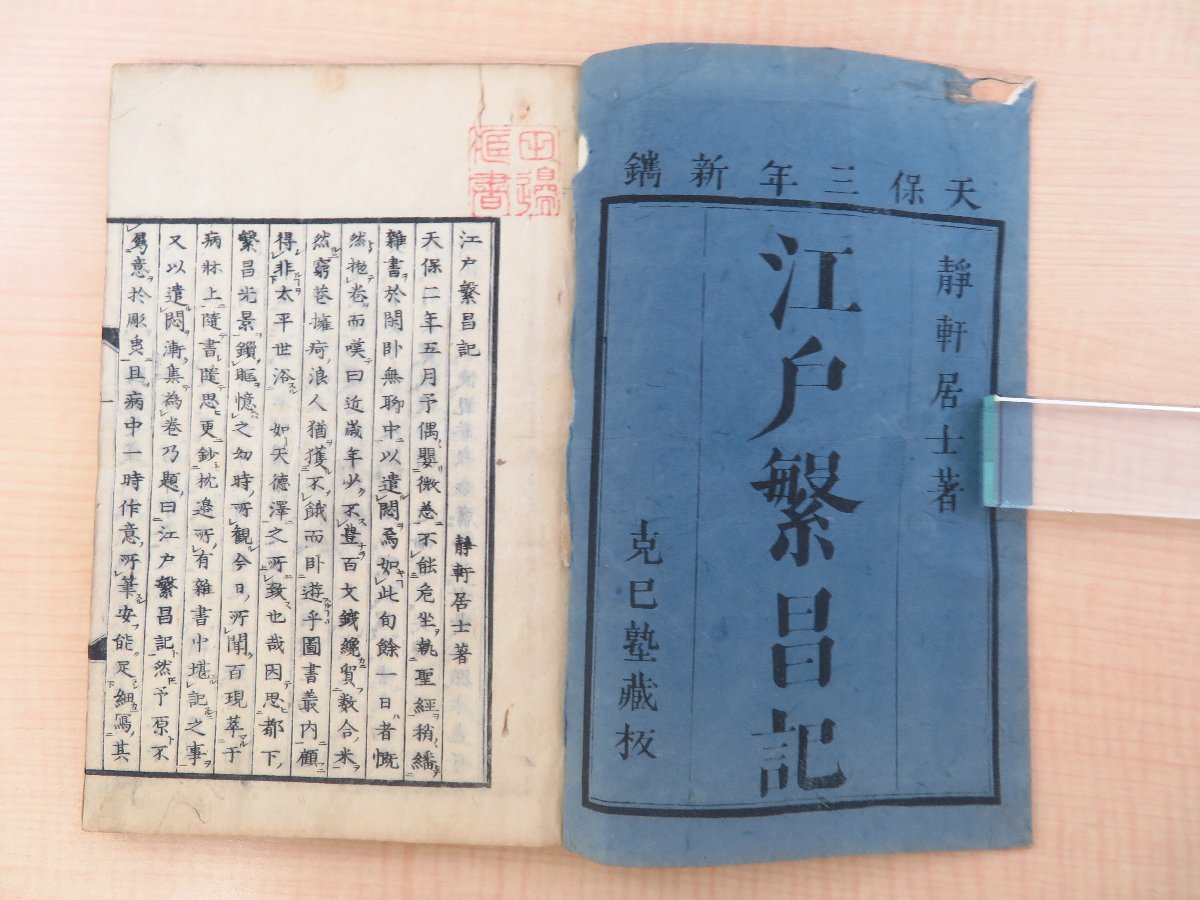 天保三年新鐫
靜軒居士著
江戶繁昌記
克巳塾藏板
田邊藏書
江戶繁昌記
靜軒居士著
天保二年五月予偶嬰微恙不能危坐執聖經稍繙
雜書於閑卧無聊中以遣悶焉如此旬餘一日者慨
然抛卷而嘆曰近歲年少不豊百文錢纔貿數合米
然窮巷擁疴浪人猶獲不餓而卧遊乎圖書叢內顧
得非太平世浴如天德澤之所致也哉因思都下
繁昌光景鎖眶憶之幼時所觀今日所聞百現萃于
病牀上隨書隨思更鈔枕邊所有雜書中堪記之事
又以遣悶漸集為卷乃題曰江戶繁昌記然予原不
屬意於彫蟲且病中一時作意所筆安能足細寫其